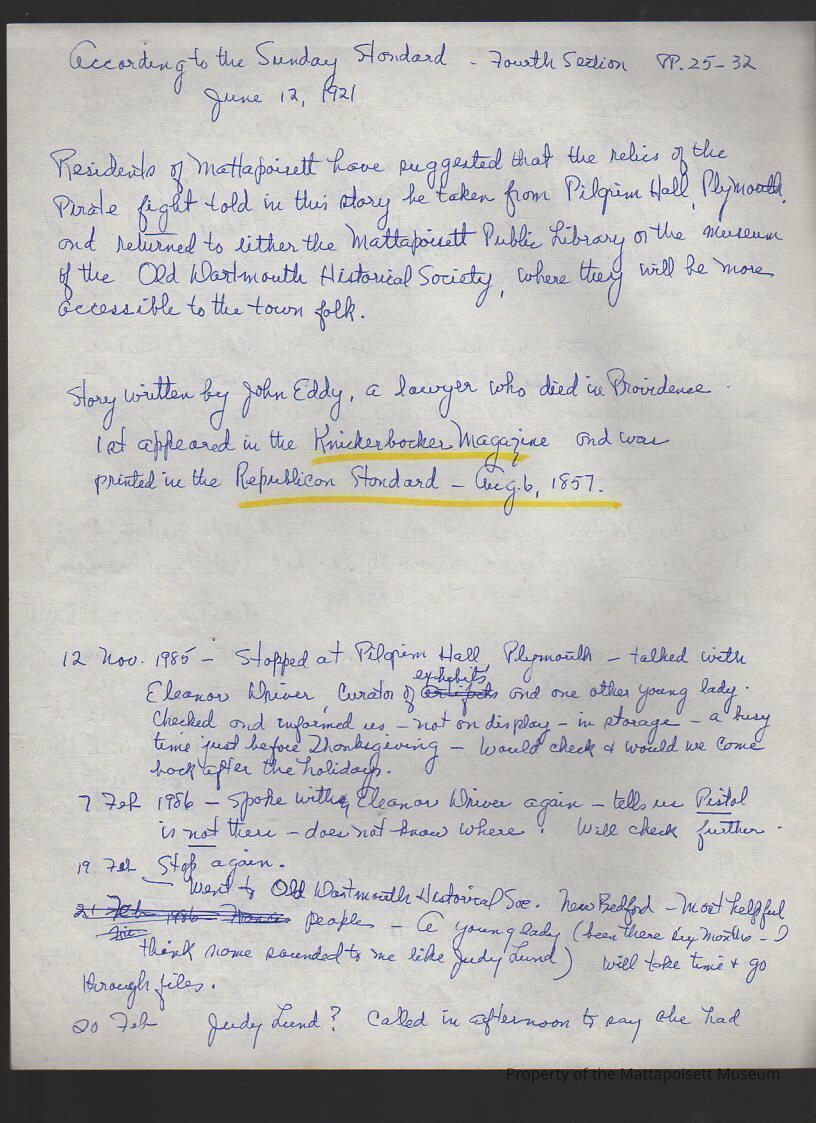 According to the Sunday Standard - Fourth Section PP. 25-32
June 12, 1921
Residents of Mattapoisett have suggested that the relics of the
Pirate fight told in this story be taken from Pilgrim Hall, Plymouth,
and returned to either the Mattapoisett Public Library or the museum
of the Old Dartmouth Historical Society, where they will be more
accessible to the town folk.
Story written by John Eddy, a lawyer who died in Providence.
1st appeared in the Knickerbocker Magazine and was
printed in the Republican Standard - Aug. 6, 1857.
12 Nov. 1985 - Stopped at Pilgrim Hall, Plymouth - talked with
exhibits
Eleanor Driver, Curator of artifacts and one other young lady.
Checked and informed us - not on display - in storage - a busy
time just before Thanksgiving - Would check & would we come
back after the holidays.
7 Feb 1986 - Spoke with Eleanor Driver again - tells us Pistol
is not there - does not know where. Will check further.
19 Feb Stop again.
- Went to Old Dartmouth Historical Soc. New Bedford - Most helpful
21 Feb 1986 - people - A young lady (been there six months - I
think name sounded to me like Judy Lund) will take time & go
through files.
20 Feb Judy Lund? Called in afternoon to say she had
Property of the Mattapoisett Museum